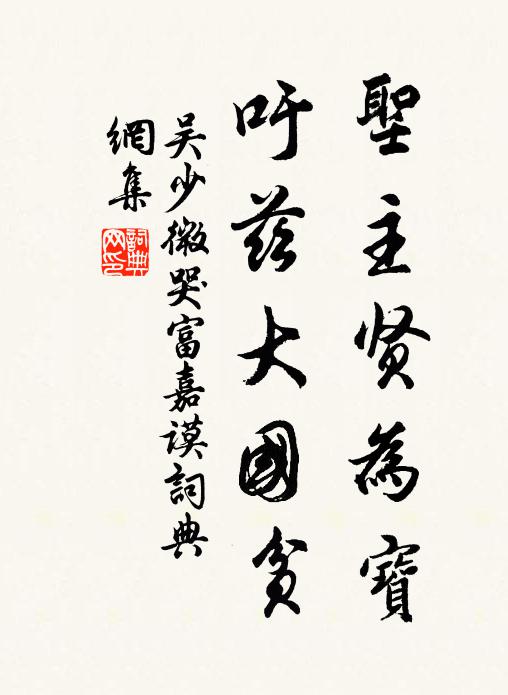 聖主賢為寶
吁茲大國貧
吴少微哭富嘉谟詞典
網集
詞典
网印